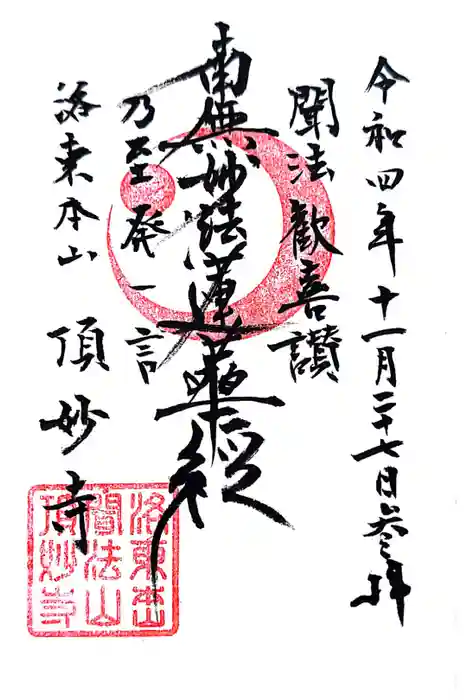 令和四年十一月二十七日参拝
聞法歡喜讃
南無妙法蓮華経
乃至発一言
洛東本山 頂妙寺
洛東本山
聞法山
頂妙寺